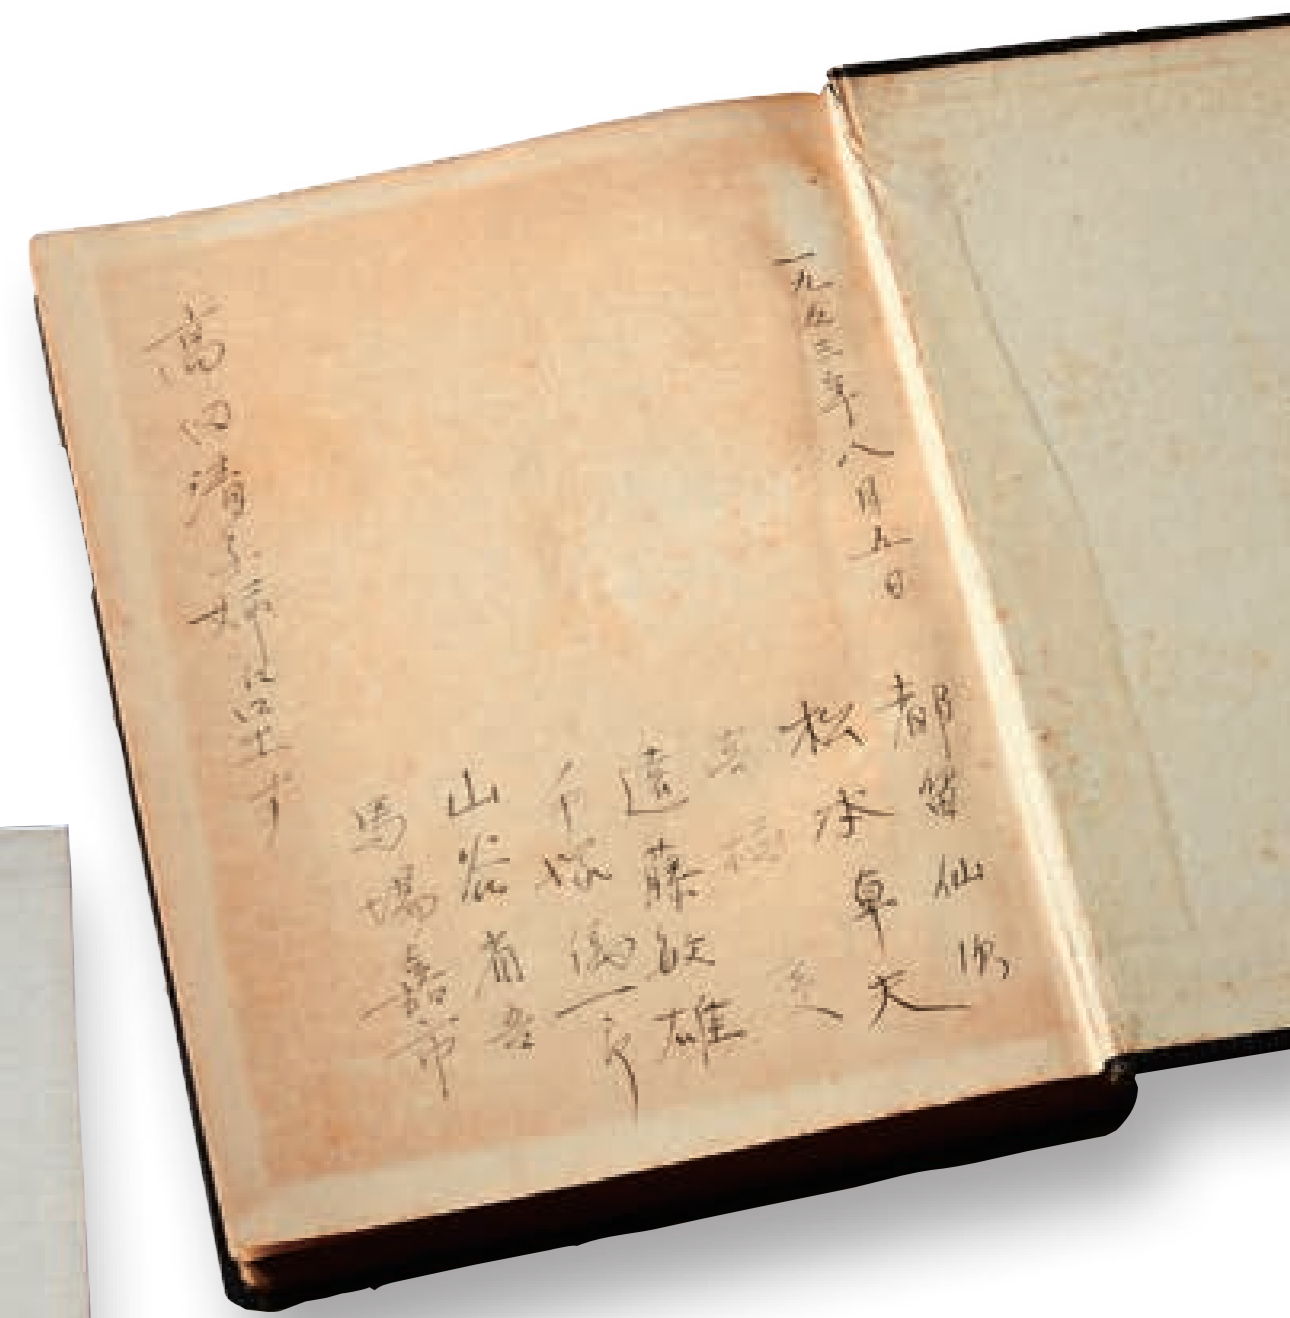 一九五三年八月五日
都留仙次
松本卓夫
高橋虔
遠藤敏雄
手塚儀一郎
山谷省吾
馬場嘉市
高田清子姉に呈す